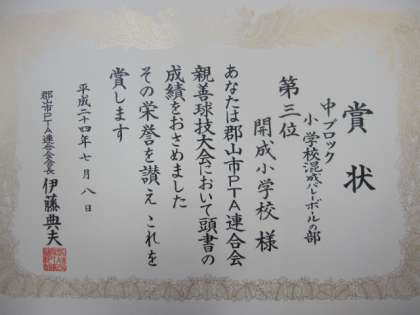 賞状
中ブロック
小学校混成バレーボールの部
第三位
開成小学校 様
あなたは郡山市PTA連合会
親善球技大会において頭書の
成績をおさめました
その栄誉を讃え これを
賞します
平成二十四年七月八日
郡山市PTA連合会会長 伊藤典夫